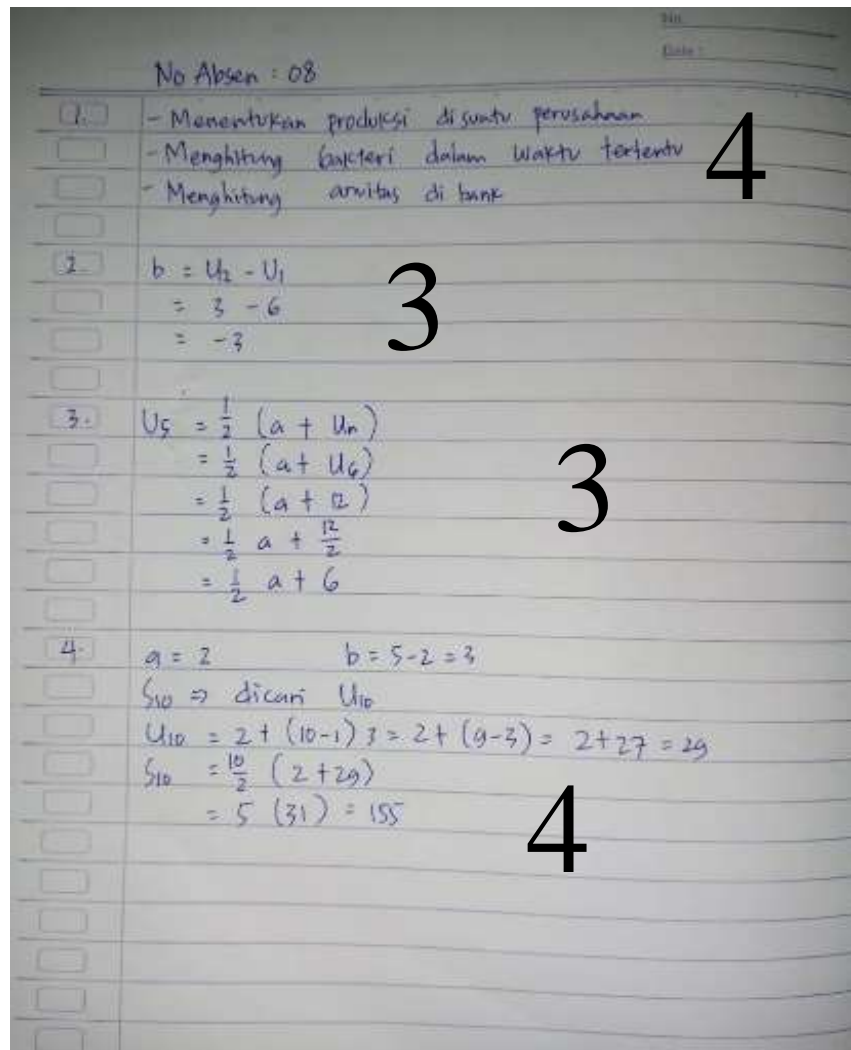 No
Date :
No Absen : 08
1. - Menentukan produksi disuatu perusahaan
- Menghitung bakteri dalam waktu tertentu
- Menghitung anvitas di bank
4
2. b = U2 - U1
= 3 - 6
= -3
3
3. U5 = 1/2 (a + Un)
= 1/2 (a + U6)
= 1/2 (a + 12)
= 1/2 a + 12/2
= 1/2 a + 6
3
4. a = 2 b = 5-2 = 3
S10 => dicari U10
U10 = 2 + (10-1) 3 = 2 + (9-3) = 2+27 = 29
S10 = 10/2 (2+29)
= 5 (31) = 155
4